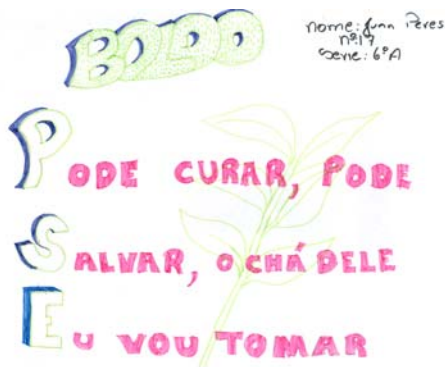 BOLDO
nome: Juan Peres
nº17
serie: 6ª A
PODE CURAR, PODE
SALVAR, O CHÁ DELE
EU VOU TOMAR